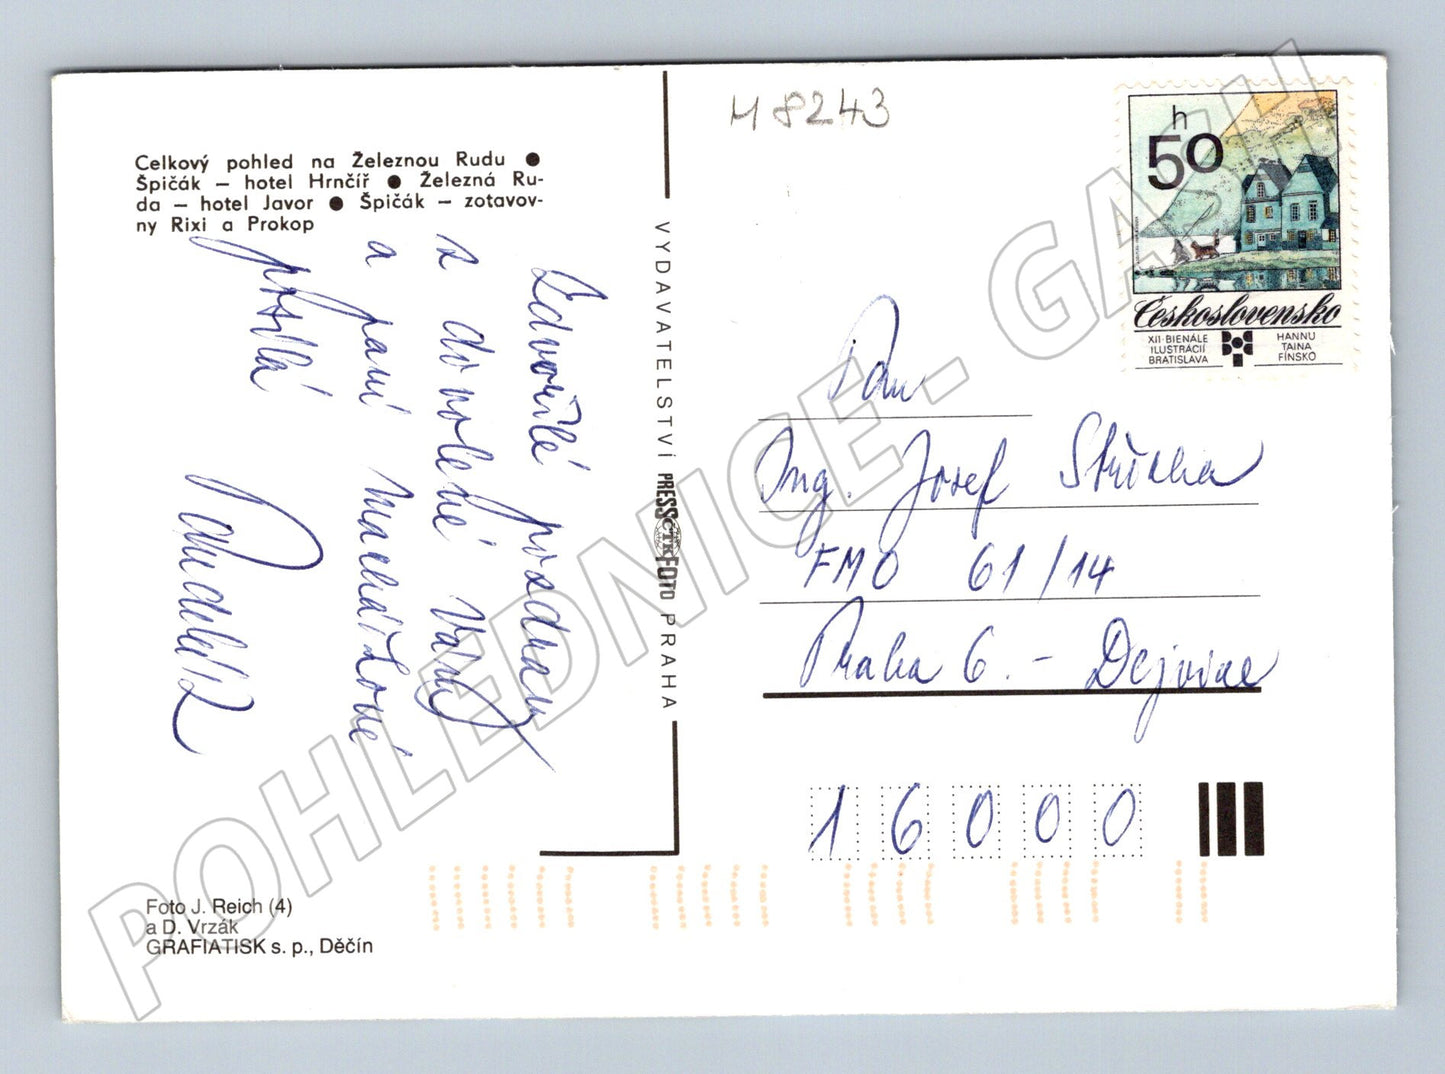 Celkový pohled na Železnou Rudu ●
Špičák – hotel Hrnčíř ● Železná Ru-
da – hotel Javor ● Špičák – zotavov-
ny Rixi a Prokop
Zdvořilé pozdravy
z dovolené Vám
a paní Machářkové
posílá
VYDAVATELSTVÍ PRESSFOTO PRAHA
ČTK
M 8243
h
50
Československo
XII. BIENÁLE
ILUSTRÁCIÍ
BRATISLAVA
HANNU
TAINA
FÍNSKO
Pan
Ing. Josef
FMO 61/14
Praha 6. – Dejvice
16000
Foto J. Reich (4)
a D. Vrzák
GRAFIATISK s. p., Děčín
POHLEDNICE - GASH